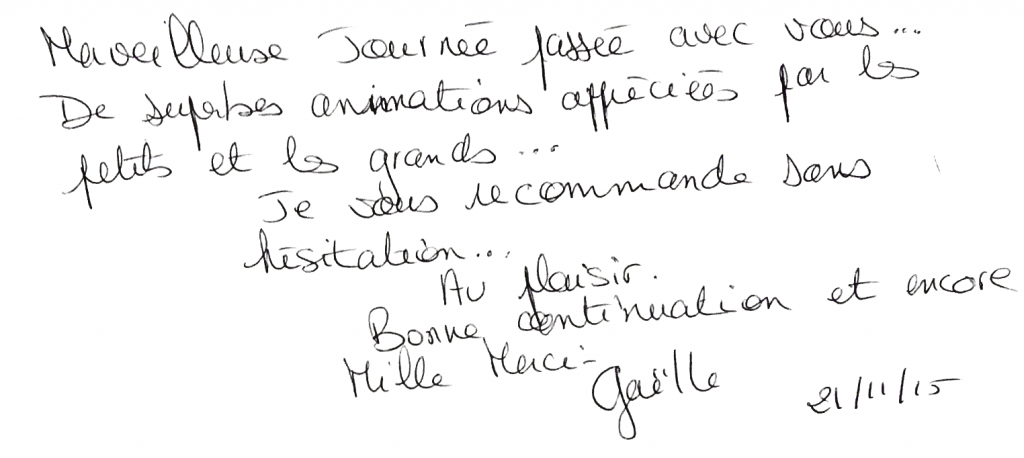 Merveilleuse Journée passée avec vous...
De superbes animations appréciées par les
petits et les grands...
Je vous recommande sans
hésitation...
Au plaisir.
Bonne continuation et encore
Mille Merci-
Gaëlle 21/11/15